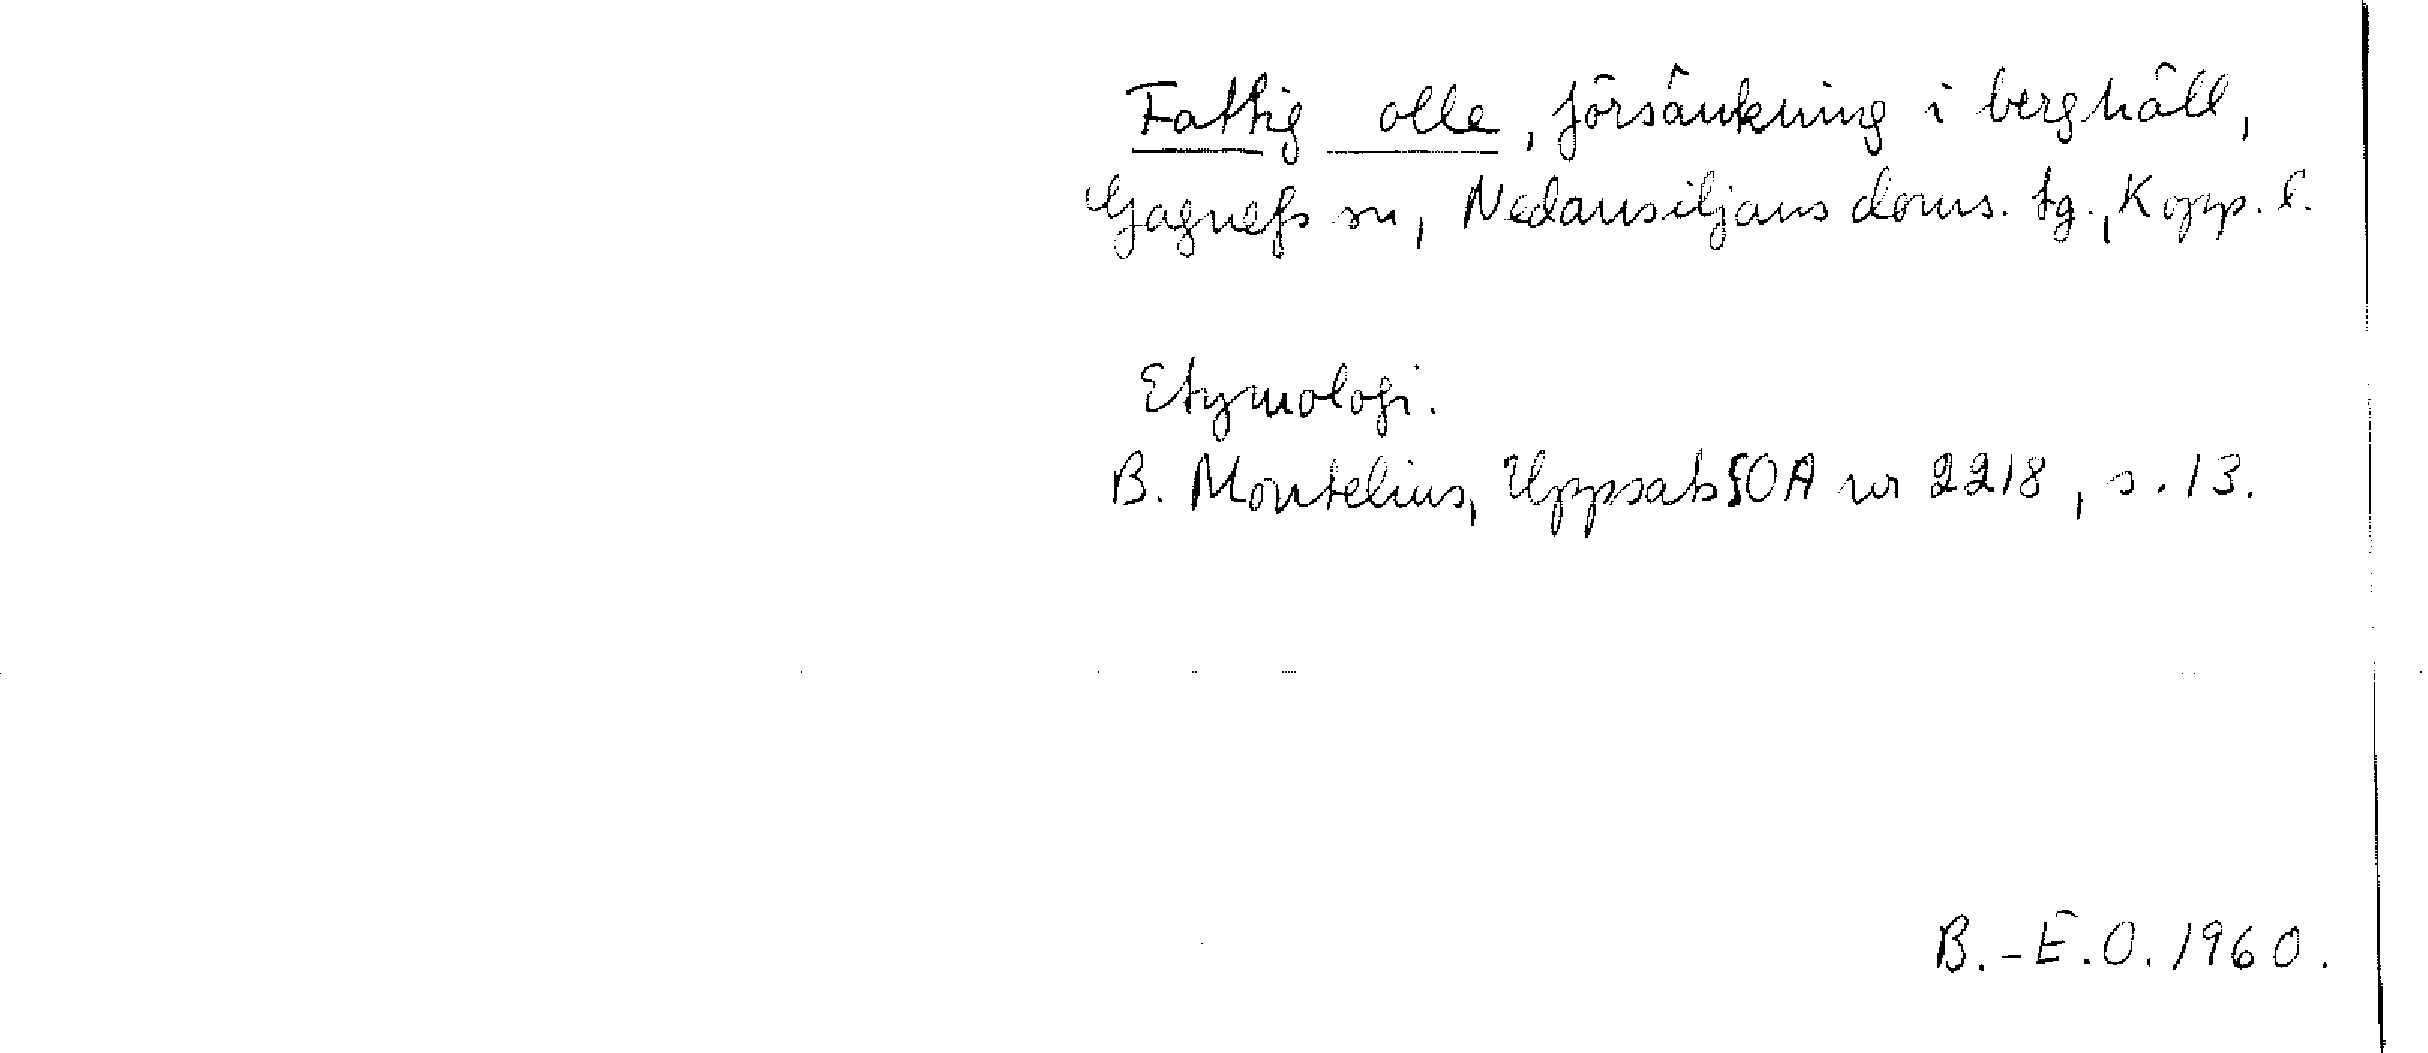 Fattig olle, försänkning i berghäll,
Gagnefs sn, Nedansiljans doms. tg., Kopp. l.
Etymologi.
B. Montelius, Uppsats SOA nr 2218, s. 13.
B.-E.O. 1960.